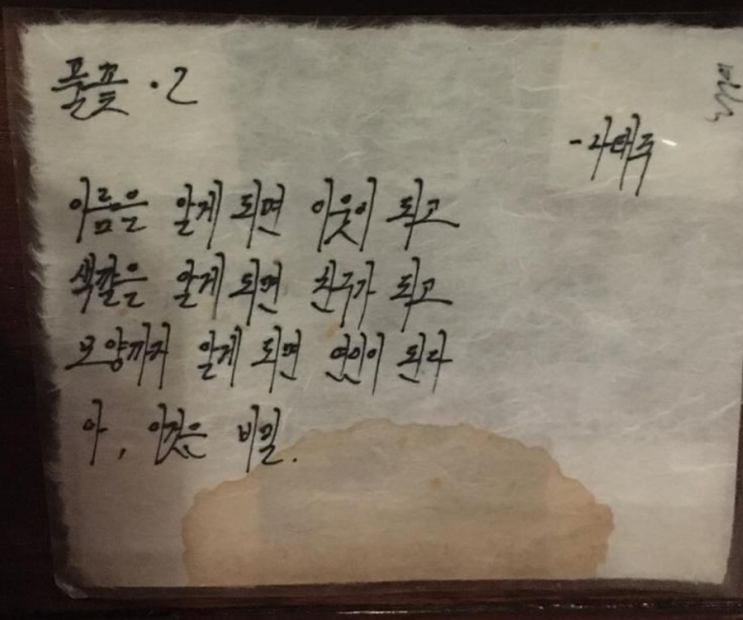 풀꽃·2
-나태주
이름은 알게 되면 이웃이 되고
색깔은 알게 되면 친구가 되고
모양까지 알게 되면 연인이 된다
아, 이것은 비밀.